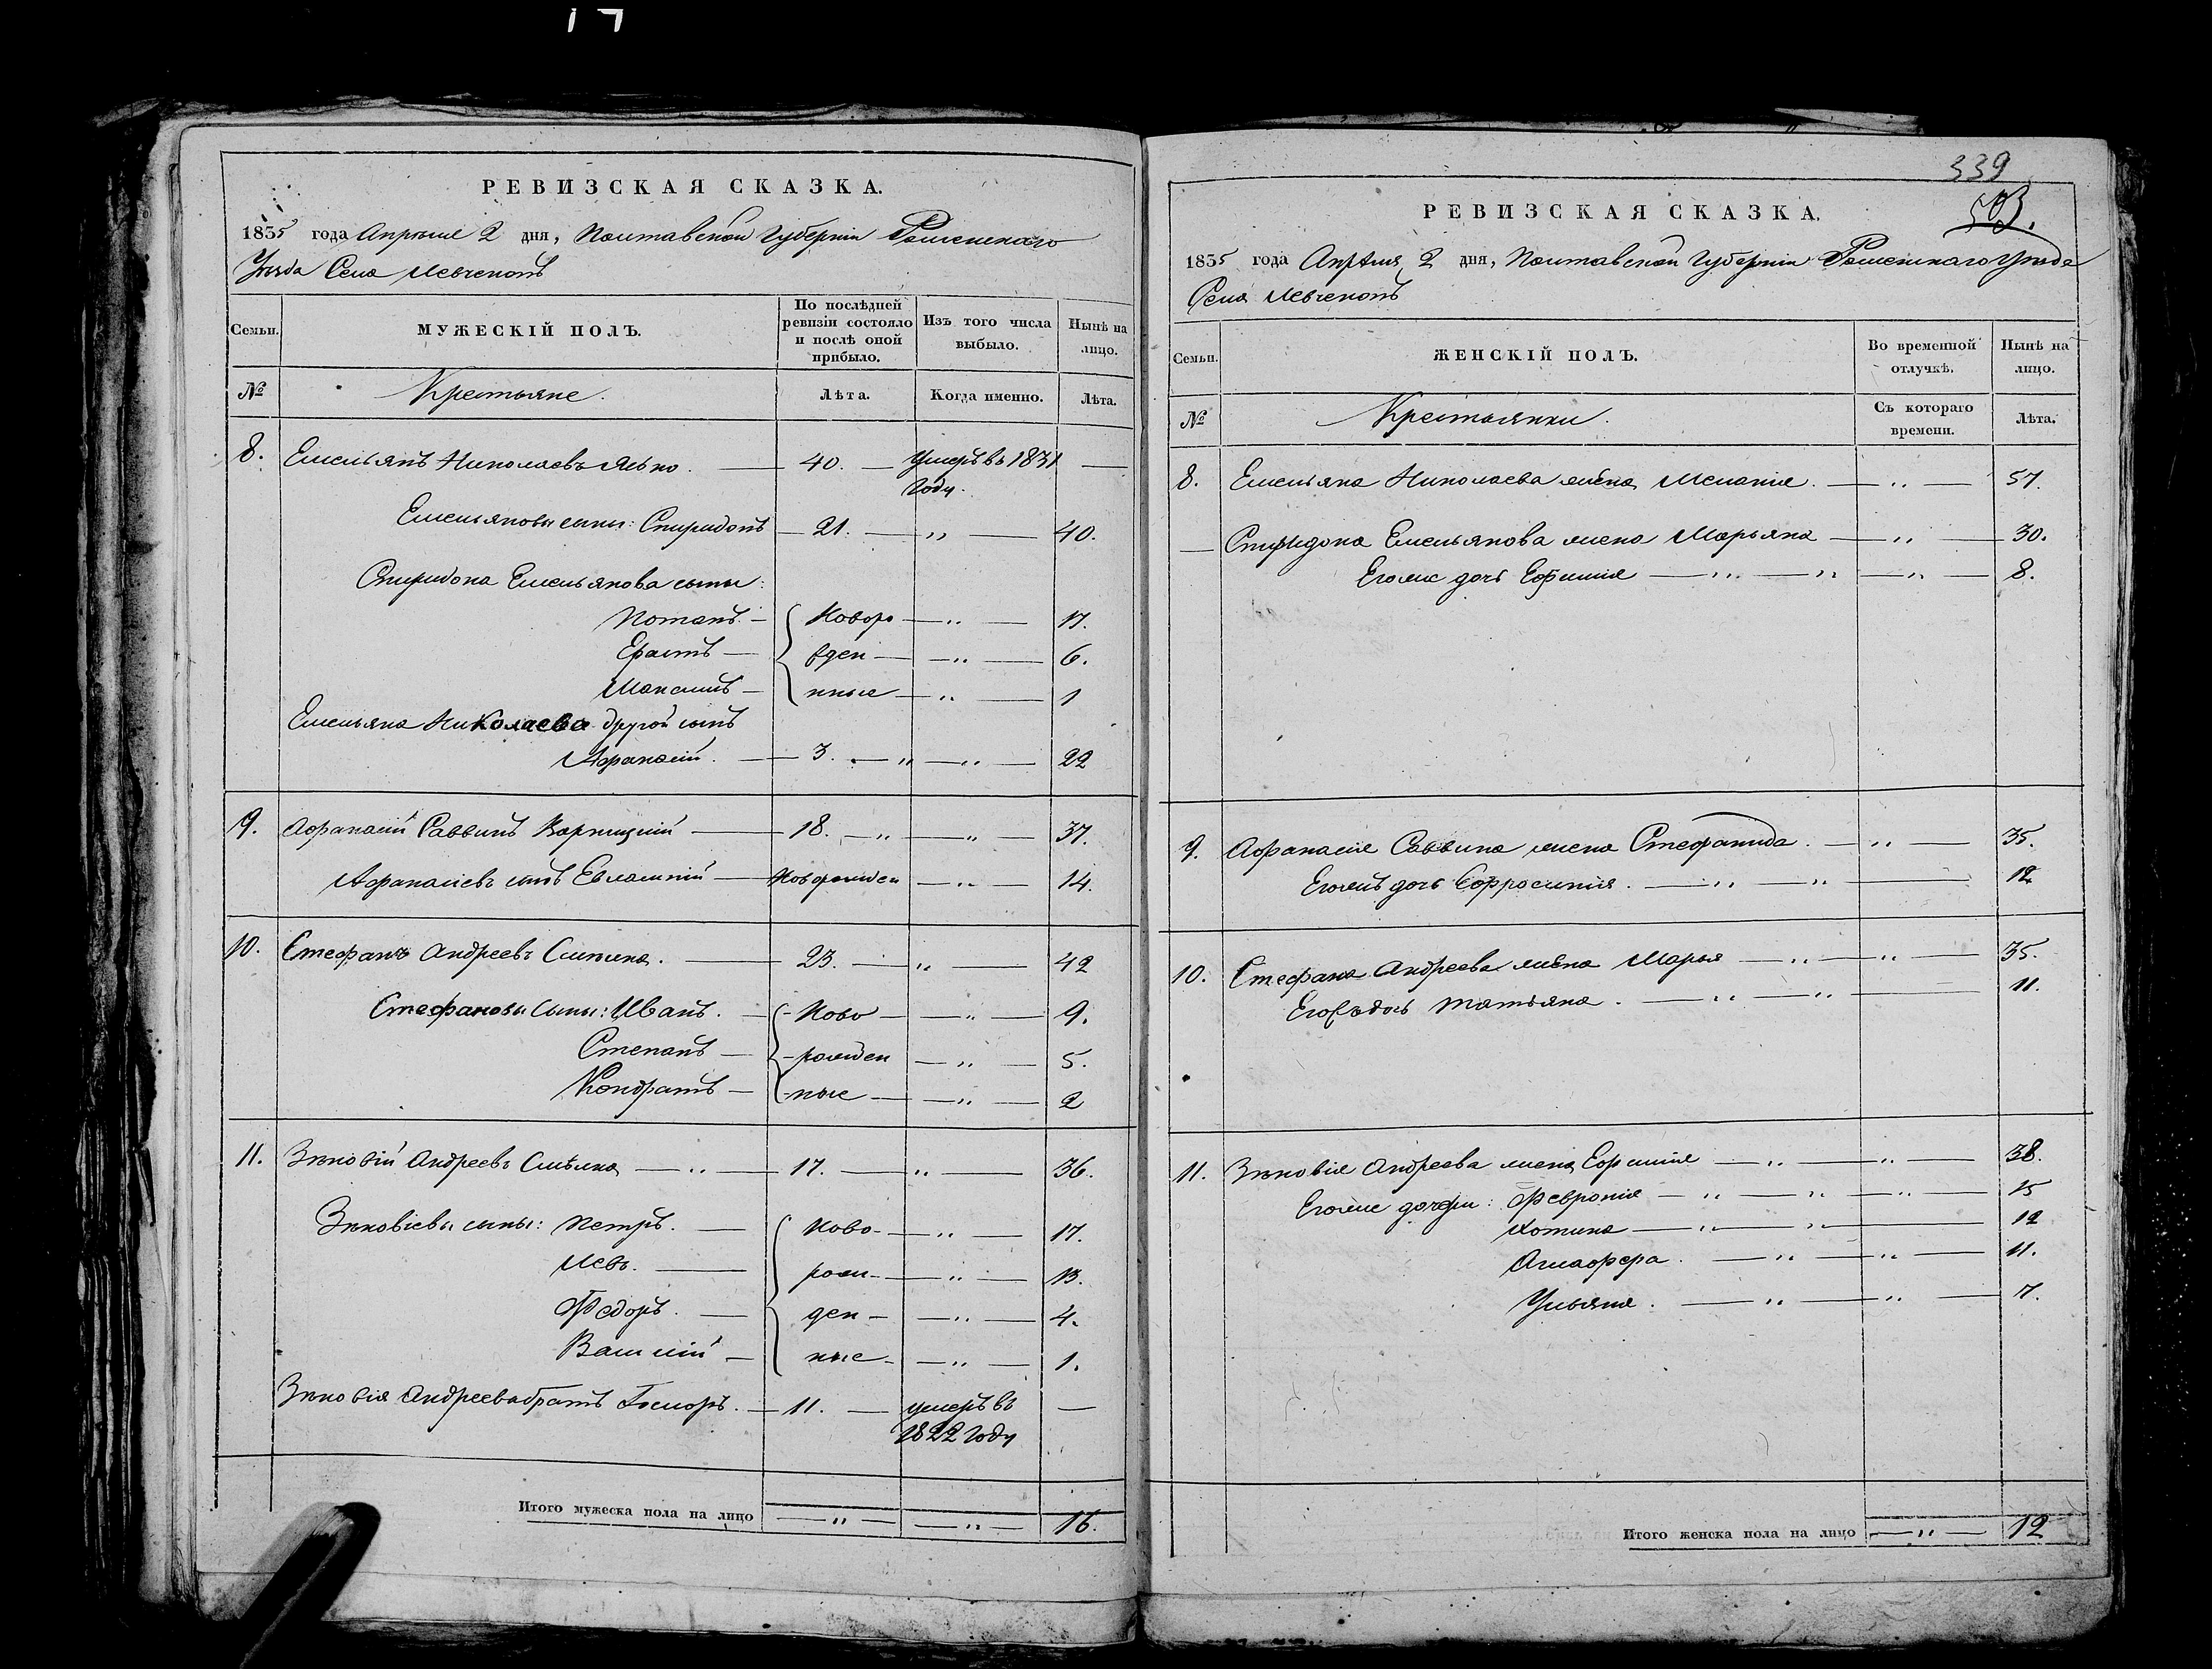 РЕВИЗСКАЯ СКАЗКА.
1835 года Апреля 2 дня, Полтавской Губерніи Роменскаго
Уезда Села Левченокъ
Семьи. МУЖЕСКІЙ ПОЛЪ. По послѣдней ревизіи состояло и послѣ оной прибыло. Изъ того числа выбыло. Нынѣ на лицо.
№ Крестьяне. Лѣта. Когда именно. Лѣта.
8. Емельянъ Николаевъ 40. Умеръ въ 1831
году.
Емельяновы сыны: Спиридонъ 21. „ 40.
Спиридона Емельянова сыны:
Потапъ Новоро „ 17.
Ерастъ жден „ 6.
Максимъ нные „ 1
Емельяна Николаева другой сынъ
Афанасій. 3. „ „ 22
9. Афанасій Саввинъ 18. „ „ 37.
Афанасіевъ сынъ Евлампій Новорожден „ 14.
10. Стефанъ Андреевъ 23. „ 42
Стефановы сыны: Иванъ. Ново „ 9.
Степанъ рожден „ 5.
Кондратъ ные „ 2
11. Зѣновій Андреевъ „ 17. „ 36.
Зѣновіевы сыны: Петръ. Ново „ 17.
Левъ. рож „ 13.
Федоръ. ден „ 4.
Василій ные „ 1.
Зѣновія Андреева братъ 11. умеръ въ
1822 году
Итого мужеска пола на лицо „ „ 16.
339
503.
РЕВИЗСКАЯ СКАЗКА.
1835 года Апреля 2 дня, Полтавской Губерніи Роменскаго Уезда
Села Левченокъ
Семьи. ЖЕНСКІЙ ПОЛЪ. Во временной отлучкѣ. Нынѣ на лицо.
№ Крестьянки. Съ котораго времени. Лѣта.
8. Емельяна Николаева жена Меланія. „ 57.
Спиридона Емельянова жена Марьяна „ 30.
Егоже дочь Ефимія „ „ „ 8.
9. Афанасія Саввина жена Стефанида. „ 35.
Егожъ дочь Ефросинія. „ „ 12
10. Стефана Андреева жена Марья „ „ 35.
дочь Татьяна. „ „ 11.
11. Зѣновія Андреева жена Ефимія „ „ 38.
Егоже дочери: Февронія „ „ „ 15
Хотина „ „ 12
Агафера. „ „ 11.
Ульяна. „ „ 7.
Итого женска пола на лицо „ 12